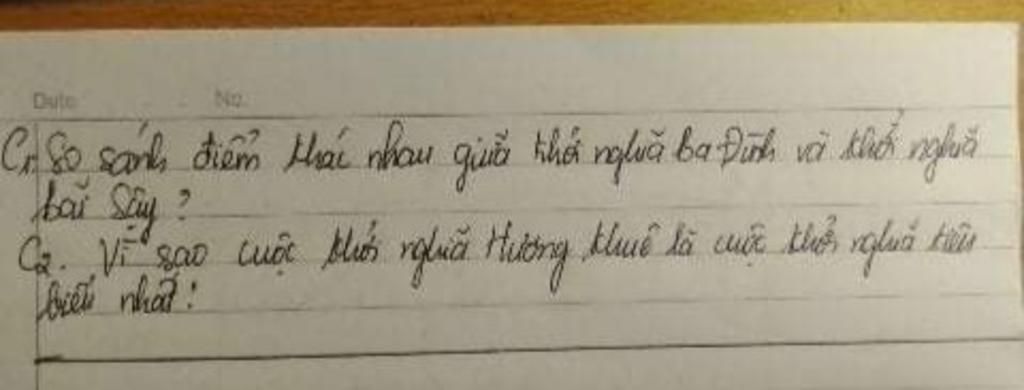 Date No.
C1. So sánh điểm khác nhau giữa khởi nghĩa ba Đình và khởi nghĩa
bãi Sậy ?
C2. Vì sao cuộc khởi nghĩa Hương khuê là cuộc khởi nghĩa tiêu
biểu nhất !